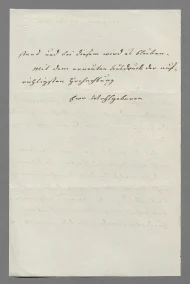 stand und bei diesem wird es bleiben.
Mit dem erneuten Ausdruck der auf-
richtigsten Hochachtung
Euer Wohlgeboren